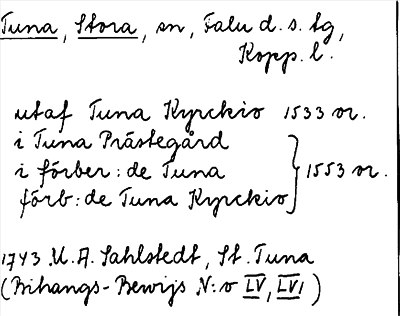 Tuna, Stora, sn, Falu d. s. tg,
Kopp. l.
utaf Tuna Kyrckio 1533 or.
i Tuna Prästegård
i förber: de Tuna } 1553 or.
förb: de Tuna Kyrckio
1743 U. A. Sahlstedt, St. Tuna
(Bihangs-Bewijs N:o LV, LVI)